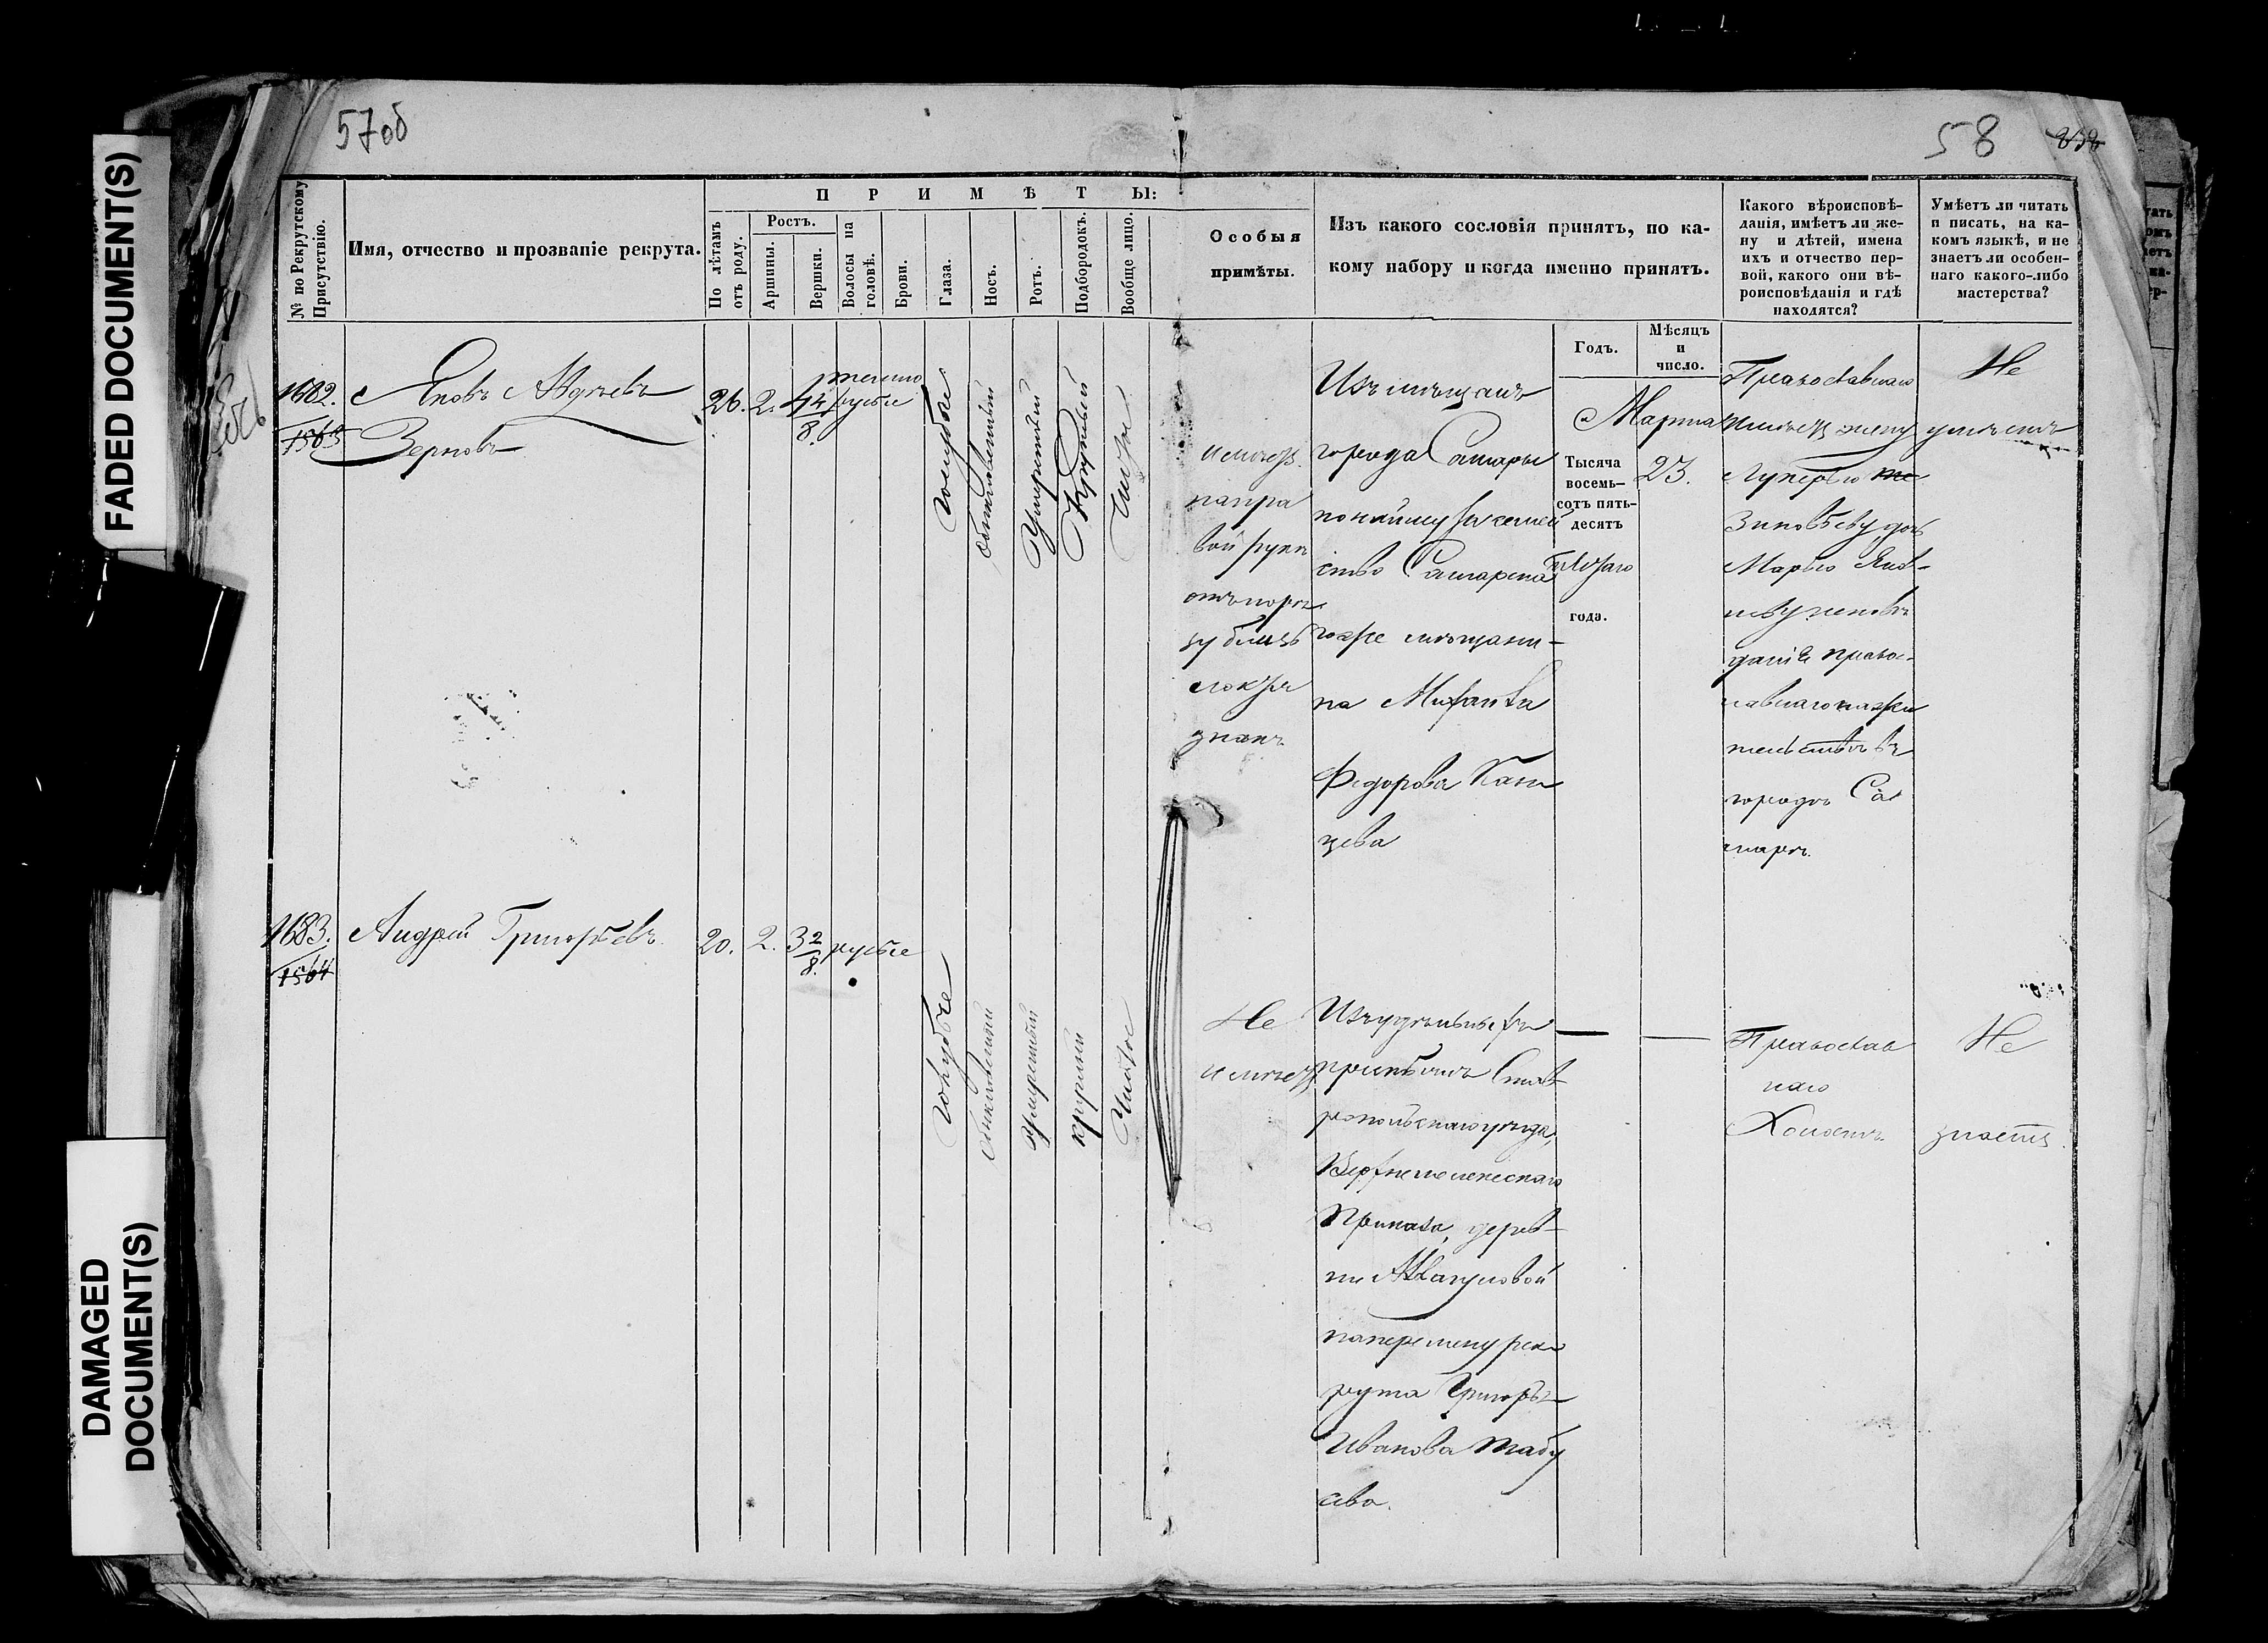 57об
58
FADED DOCUMENT(S)
DAMAGED
DOCUMENT(S)
№ по Рекрутскому
Присутствію.
Имя, отчество и прозваніе рекрута.
ПРИМѢТЫ:
По лѣтамъ
отъ роду.
Ростъ.
Аршины.
Вершки.
Волосы на
головѣ.
Брови.
Глаза.
Носъ.
Ротъ.
Подбородокъ.
Вообще лицо.
Особыя
примѣты.
Изъ какого сословія принятъ, по ка-
кому набору и когда именно принятъ.
Какого вѣроисповѣ-
данія, имѣетъ ли же-
ну и дѣтей, имена
ихъ и отчество пер-
вой, какого они вѣ-
роисповѣданія и гдѣ
находятся?
Умѣетъ ли читать
и писать, на ка-
комъ языкѣ, и не
знаетъ ли особен-
наго какого-либо
мастерства?
Годъ.
Мѣсяцъ
и
число.
1682.
1563
Яковъ Авдѣевъ
Зерновъ
26. 2. 4 4/8.
темно
русые
голубые
обыкновенный
Умѣренный
Круглый
Чистое
имѣетъ
на пра
вой рукѣ
отъ порѣ
зу близь
локтя
знакъ
Изъ мѣщанъ
города Самары
по найму за семей
ство Самарска
гоже мѣщани-
на Михаила
Федорова Казан
цева
Тысяча
восемь-
сотъ пять-
десятъ
пятаго
года.
Марта
23.
Православнаго
имѣетъ жену
Лукерью
Зиновьеву дочь
Марью Яков-
леву исповѣ
данія Правос-
лавнаго на жи
тельствѣ въ
городѣ Са
марѣ.
Не
умѣетъ
1683.
1564
Андрей Григорьевъ
20. 2. 3 2/8. русые
голубые
обыкновенный
умѣренный
круглый
Чистое
Не
имѣетъ
Изъ удѣльныхъ
крестьянъ Став
ропольскаго уѣзда,
Верхнемелекескаго
Приказа, дерев-
ни
на перемену рек
рута Григорья
Иванова
Православ
наго
Холостъ
Не
знаетъ